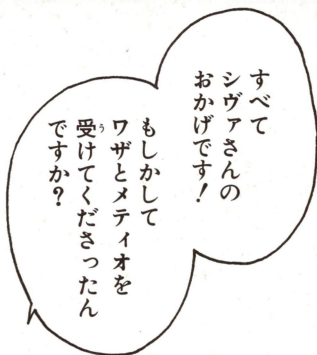 すべて
シヴァさんの
おかげです!
もしかして
ワザとメティオを
受けてくださったん
ですか?